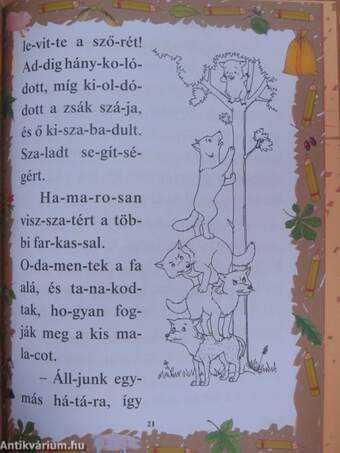 le-vit-te a sző-rét!
Ad-dig hány-ko-ló-
dott, míg ki-ol-dó-
dott a zsák szá-ja,
és ő ki-sza-ba-dult.
Sza-ladt se-gít-sé-
gért.
Ha-ma-ro-san
visz-sza-tért a töb-
bi far-kas-sal.
O-da-men-tek a fa
alá, és ta-na-kod-
tak, ho-gyan fog-
ják meg a kis ma-
la-cot.
– Áll-junk egy-
más há-tá-ra, így
21
Antikvárium.hu